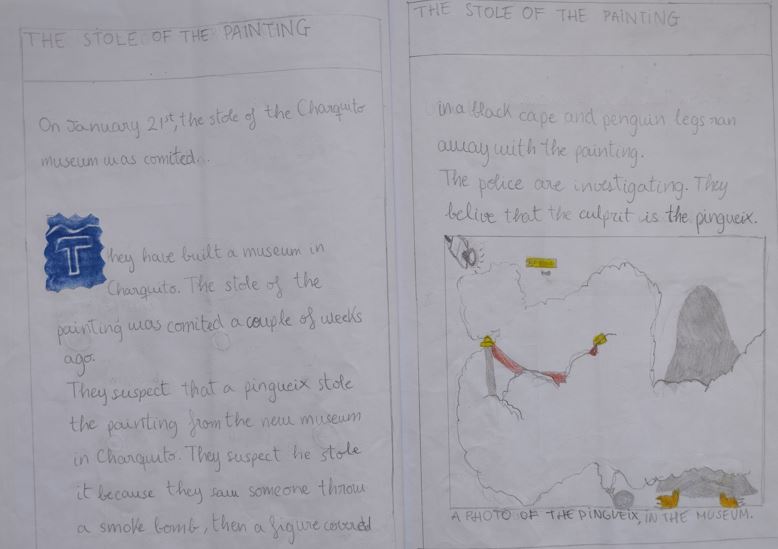 THE STOLE OF THE PAINTING
On January 21st, the stole of the Charquito
museum was comited.
They have built a museum in
Charquito. The stole of the
painting was comited a couple of weeks
ago.
They suspect that a pingueix stole
the painting from the new museum
in Charquito. They suspect he stole
it because they saw someone throw
a smoke bomb, then a figure covered
THE STOLE OF THE PAINTING
in a black cape and penguin legs ran
away with the painting.
The police are investigating. They
belive that the culprit is the pingueix.
A PHOTO OF THE PINGUEIX, IN THE MUSEUM.